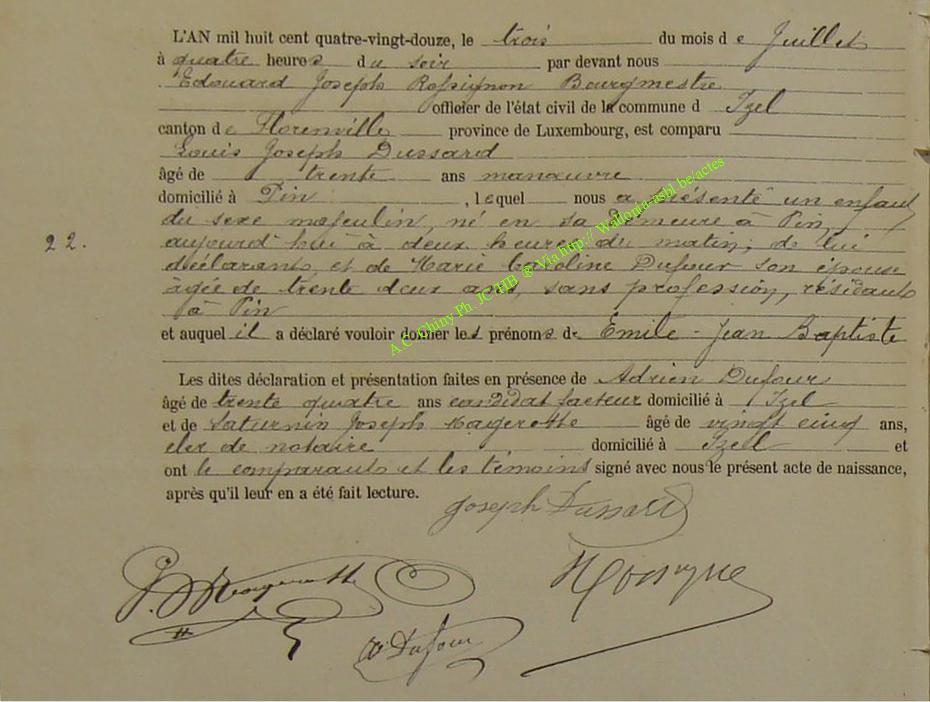 L'AN mil huit cent quatre-vingt-douze, le trois du mois de Juillet
à quatre heures du soir par devant nous
Edouard Joseph Rossignon Bourgmestre
officier de l'état civil de la commune d Izel
canton de Florenville province de Luxembourg, est comparu
Louis Joseph Dussard
âgé de trente ans manœuvre
domicilié à Pin , lequel nous a présenté un enfant
du sexe masculin, né en sa demeure à Pin
aujourd'hui à deux heures du matin; de lui
déclarant, et de Marie Caroline Dufour son épouse
âgée de trente deux ans, sans profession, résidant
à Pin
22.
et auquel il a déclaré vouloir donner les prénoms de Émile - Jean Baptiste
Les dites déclaration et présentation faites en présence de Adrien Dufour
âgé de trente quatre ans candidat facteur domicilié à Izel
et de Saturnin Joseph Magerotte âgé de vingt cinq ans,
clerc de notaire domicilié à Izel et
ont le comparant et les témoins signé avec nous le présent acte de naissance,
après qu'il leur en a été fait lecture.
Joseph Dussard
Magerotte
A Dufour
A.C. Chiny Ph. JC HB @ Via http:// Wallonia-asbl.be/actes